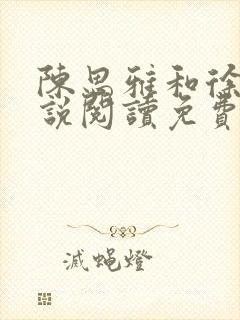 陳思雅和徐
說閱讀免費
滅蝇燈